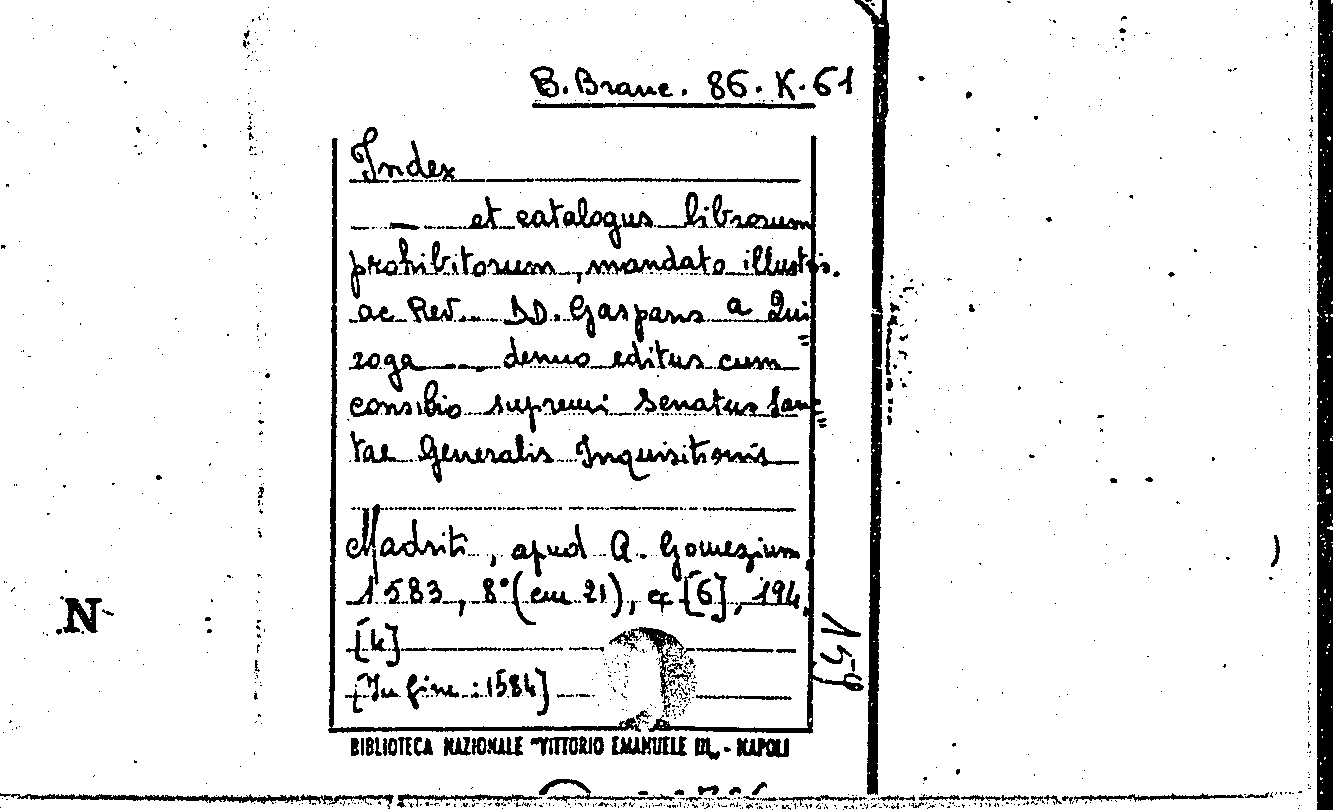 B. Branc. 86. K. 61
Index
__ et catalogus librorum
prohibitorum, mandato illustris.
ac Rev. DD. Gasparis a Qui
roga __ denuo editus cum
consilio supremi Senatus Sanc
tae Generalis Inquisitionis
Madriti, apud A. Gomezium
1583, 8° (cm 21), cc [6], 194,
[4]
[In fine: 1584]
159
N
BIBLIOTECA NAZIONALE "VITTORIO EMANUELE III" - NAPOLI